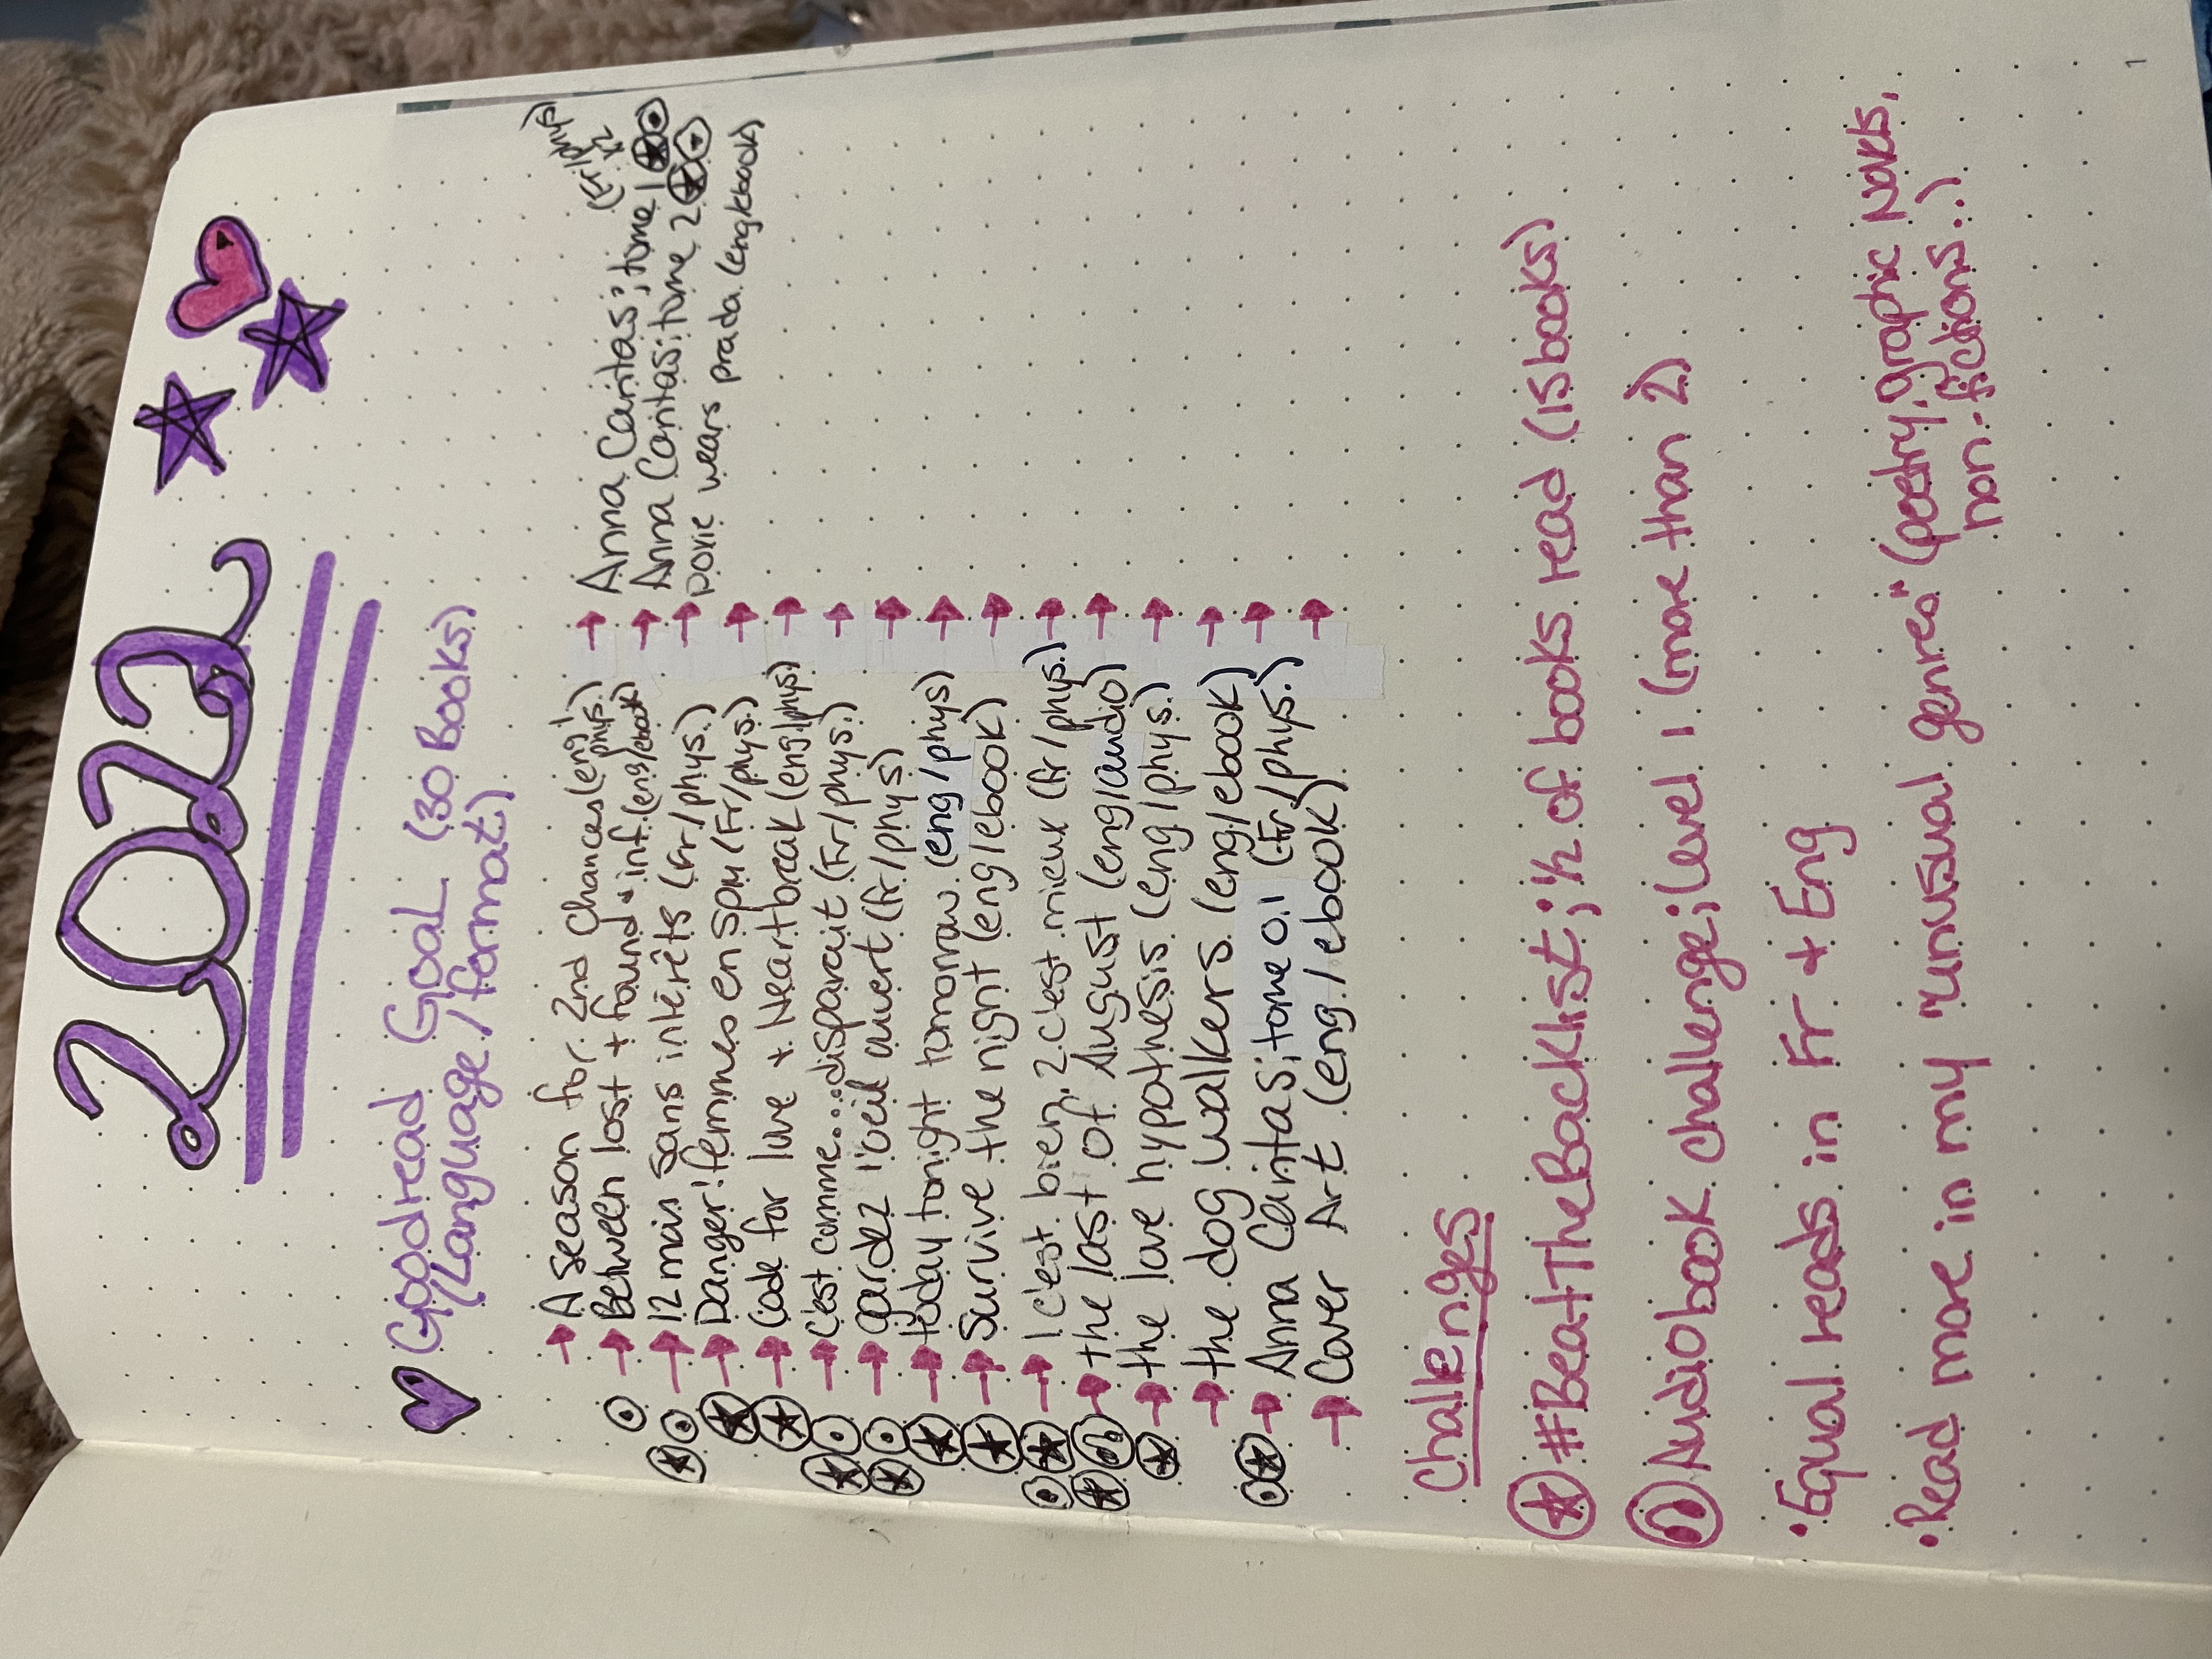 2022
Goodread Goal (30 Books)
(Language/format)
→ A season for 2nd Chances (eng/
phys.)
→ Between lost + found + inf. (eng/ebook)
→ 12 mois sans intérêts (Fr/phys.)
→ Danger! femmes en SPM (Fr/phys.)
→ Code for love + Heartbreak (eng/phys)
→ C'est comme...disparait (Fr/phys.)
→ gardez l'oeil ouvert (fr/phys)
→ today tonight tomorrow (eng/phys)
→ Survive the night (eng/ebook)
→ 1 c'est bien, 2 c'est mieux (fr/phys.)
→ the last of August (eng/audio)
→ the love hypothesis (eng/phys.)
→ the dog walkers (eng/ebook)
→ Anna Caritas; tome 0.1 (Fr/phys.)
→ Cover Art (eng./ebook)
(Fr/phys)
x2
→ Anna Caritas; tome 1
→ Anna Caritas; tome 2
→ Dovie wears prada (eng/ebook)
Challenges
#BeatTheBacklist; 1/2 of books read (15 books)
Audiobook challenge; level 1 (more than 2)
• Equal reads in Fr + Eng
• Read more in my "unusual genres" (poetry, graphic Novels,
non-fictions..)
1